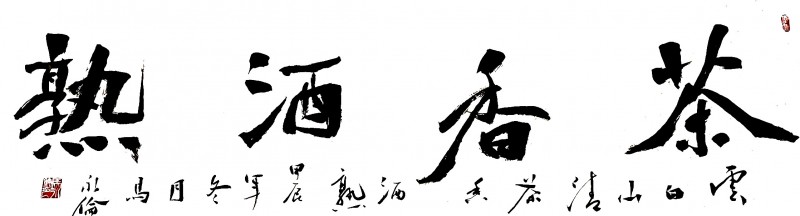 茶香酒熟
雲白山清茶香酒熟甲辰年冬月馬永倫